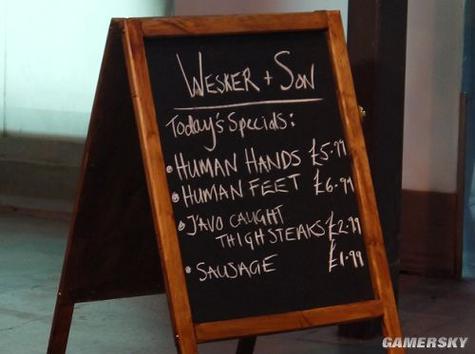 WESKER + SON
Today's Specials:
• HUMAN HANDS £5.99
• HUMAN FEET £6.99
• J'AVO CAUGHT
THIGH STEAKS £2.99
• SAUSAGE £1.99
GAMERSKY